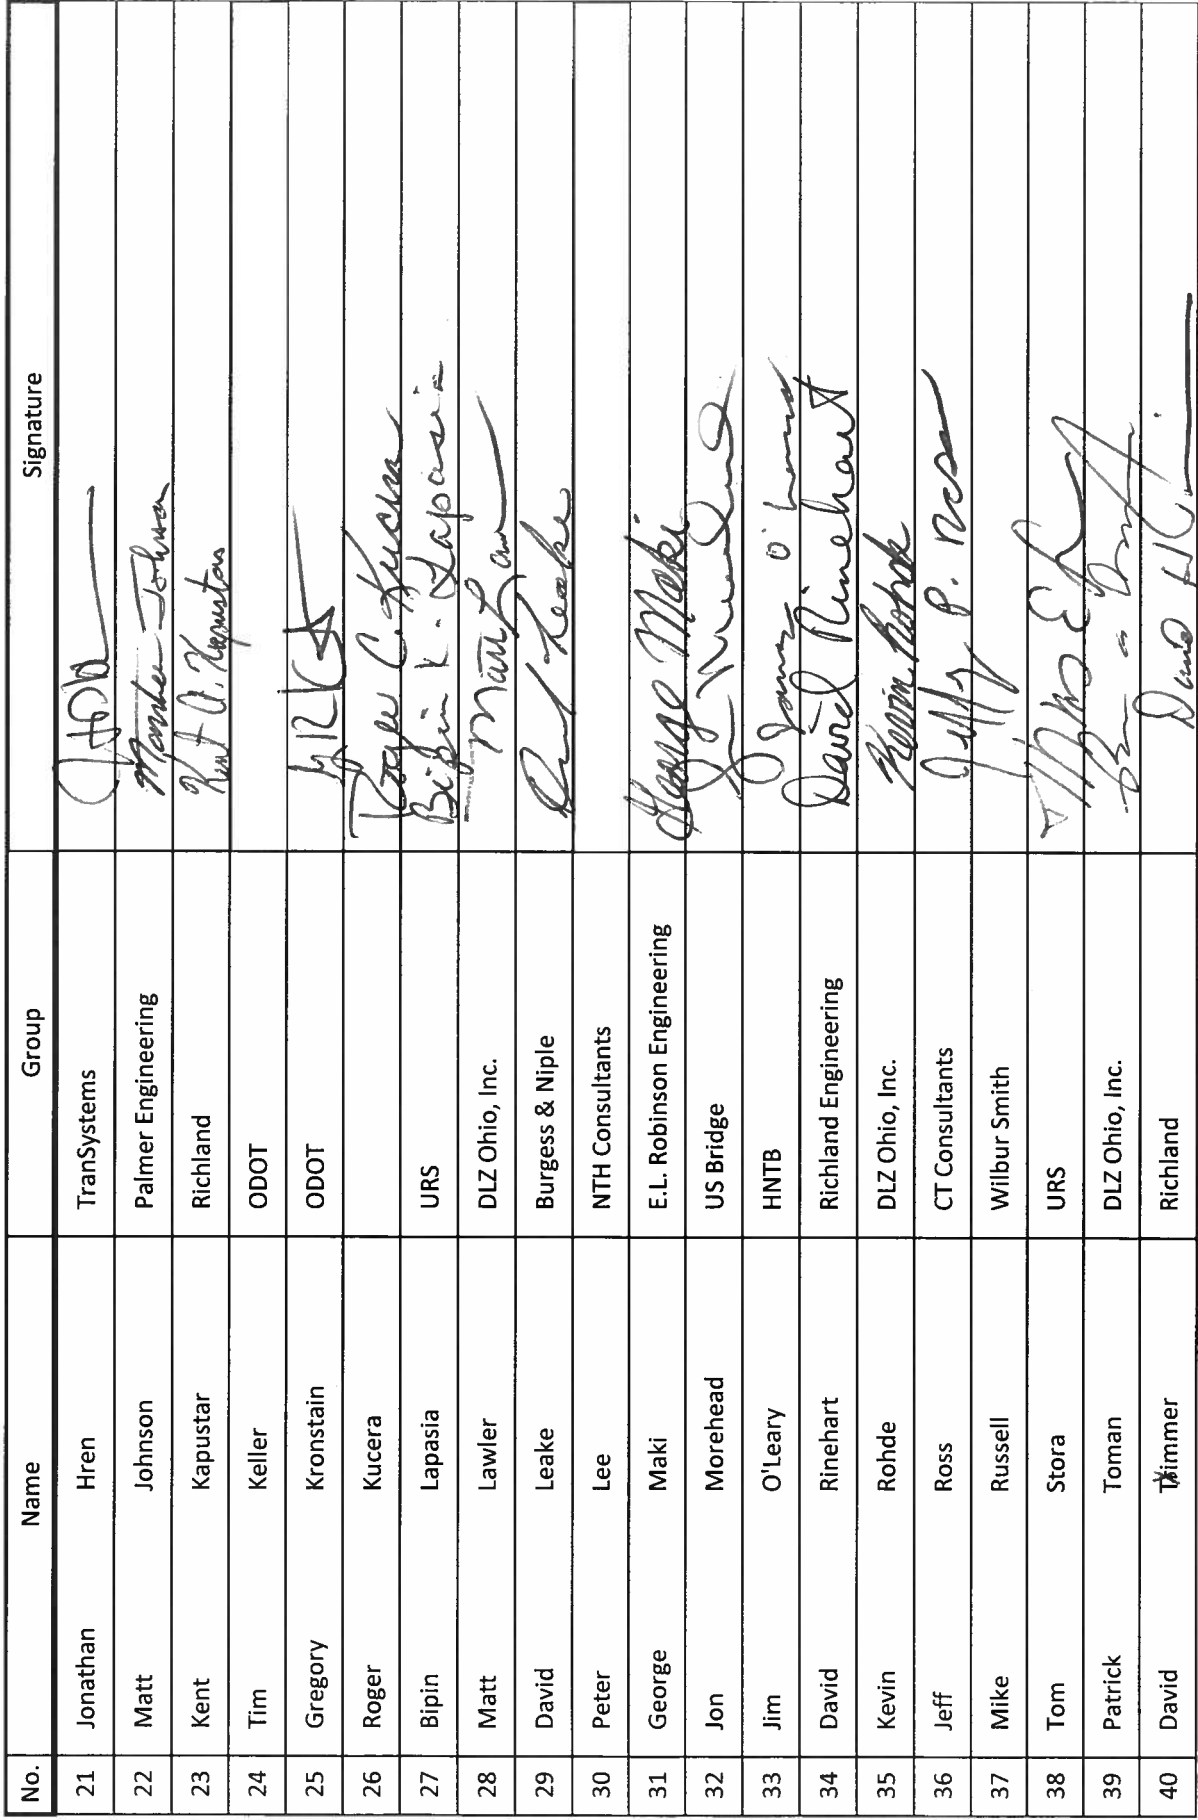 No. Name Group Signature
21 Jonathan Hren TranSystems
22 Matt Johnson Palmer Engineering Matthew Johnson
23 Kent Kapustar Richland Kent A. Kapustar
24 Tim Keller ODOT
25 Gregory Kronstain ODOT
26 Roger Kucera Roger C. Kucera
27 Bipin Lapasia URS Bipin K. Lapasia
28 Matt Lawler DLZ Ohio, Inc. Matt
29 David Leake Burgess & Niple Leake
30 Peter Lee NTH Consultants
31 George Maki E.L. Robinson Engineering George Maki
32 Jon Morehead US Bridge
33 Jim O'Leary HNTB
34 David Rinehart Richland Engineering David Rinehart
35 Kevin Rohde DLZ Ohio, Inc. Kevin Rohde
36 Jeff Ross CT Consultants Jeffry P. Ross
37 Mike Russell Wilbur Smith
38 Tom Stora URS
39 Patrick Toman DLZ Ohio, Inc.
40 David immer Richland David